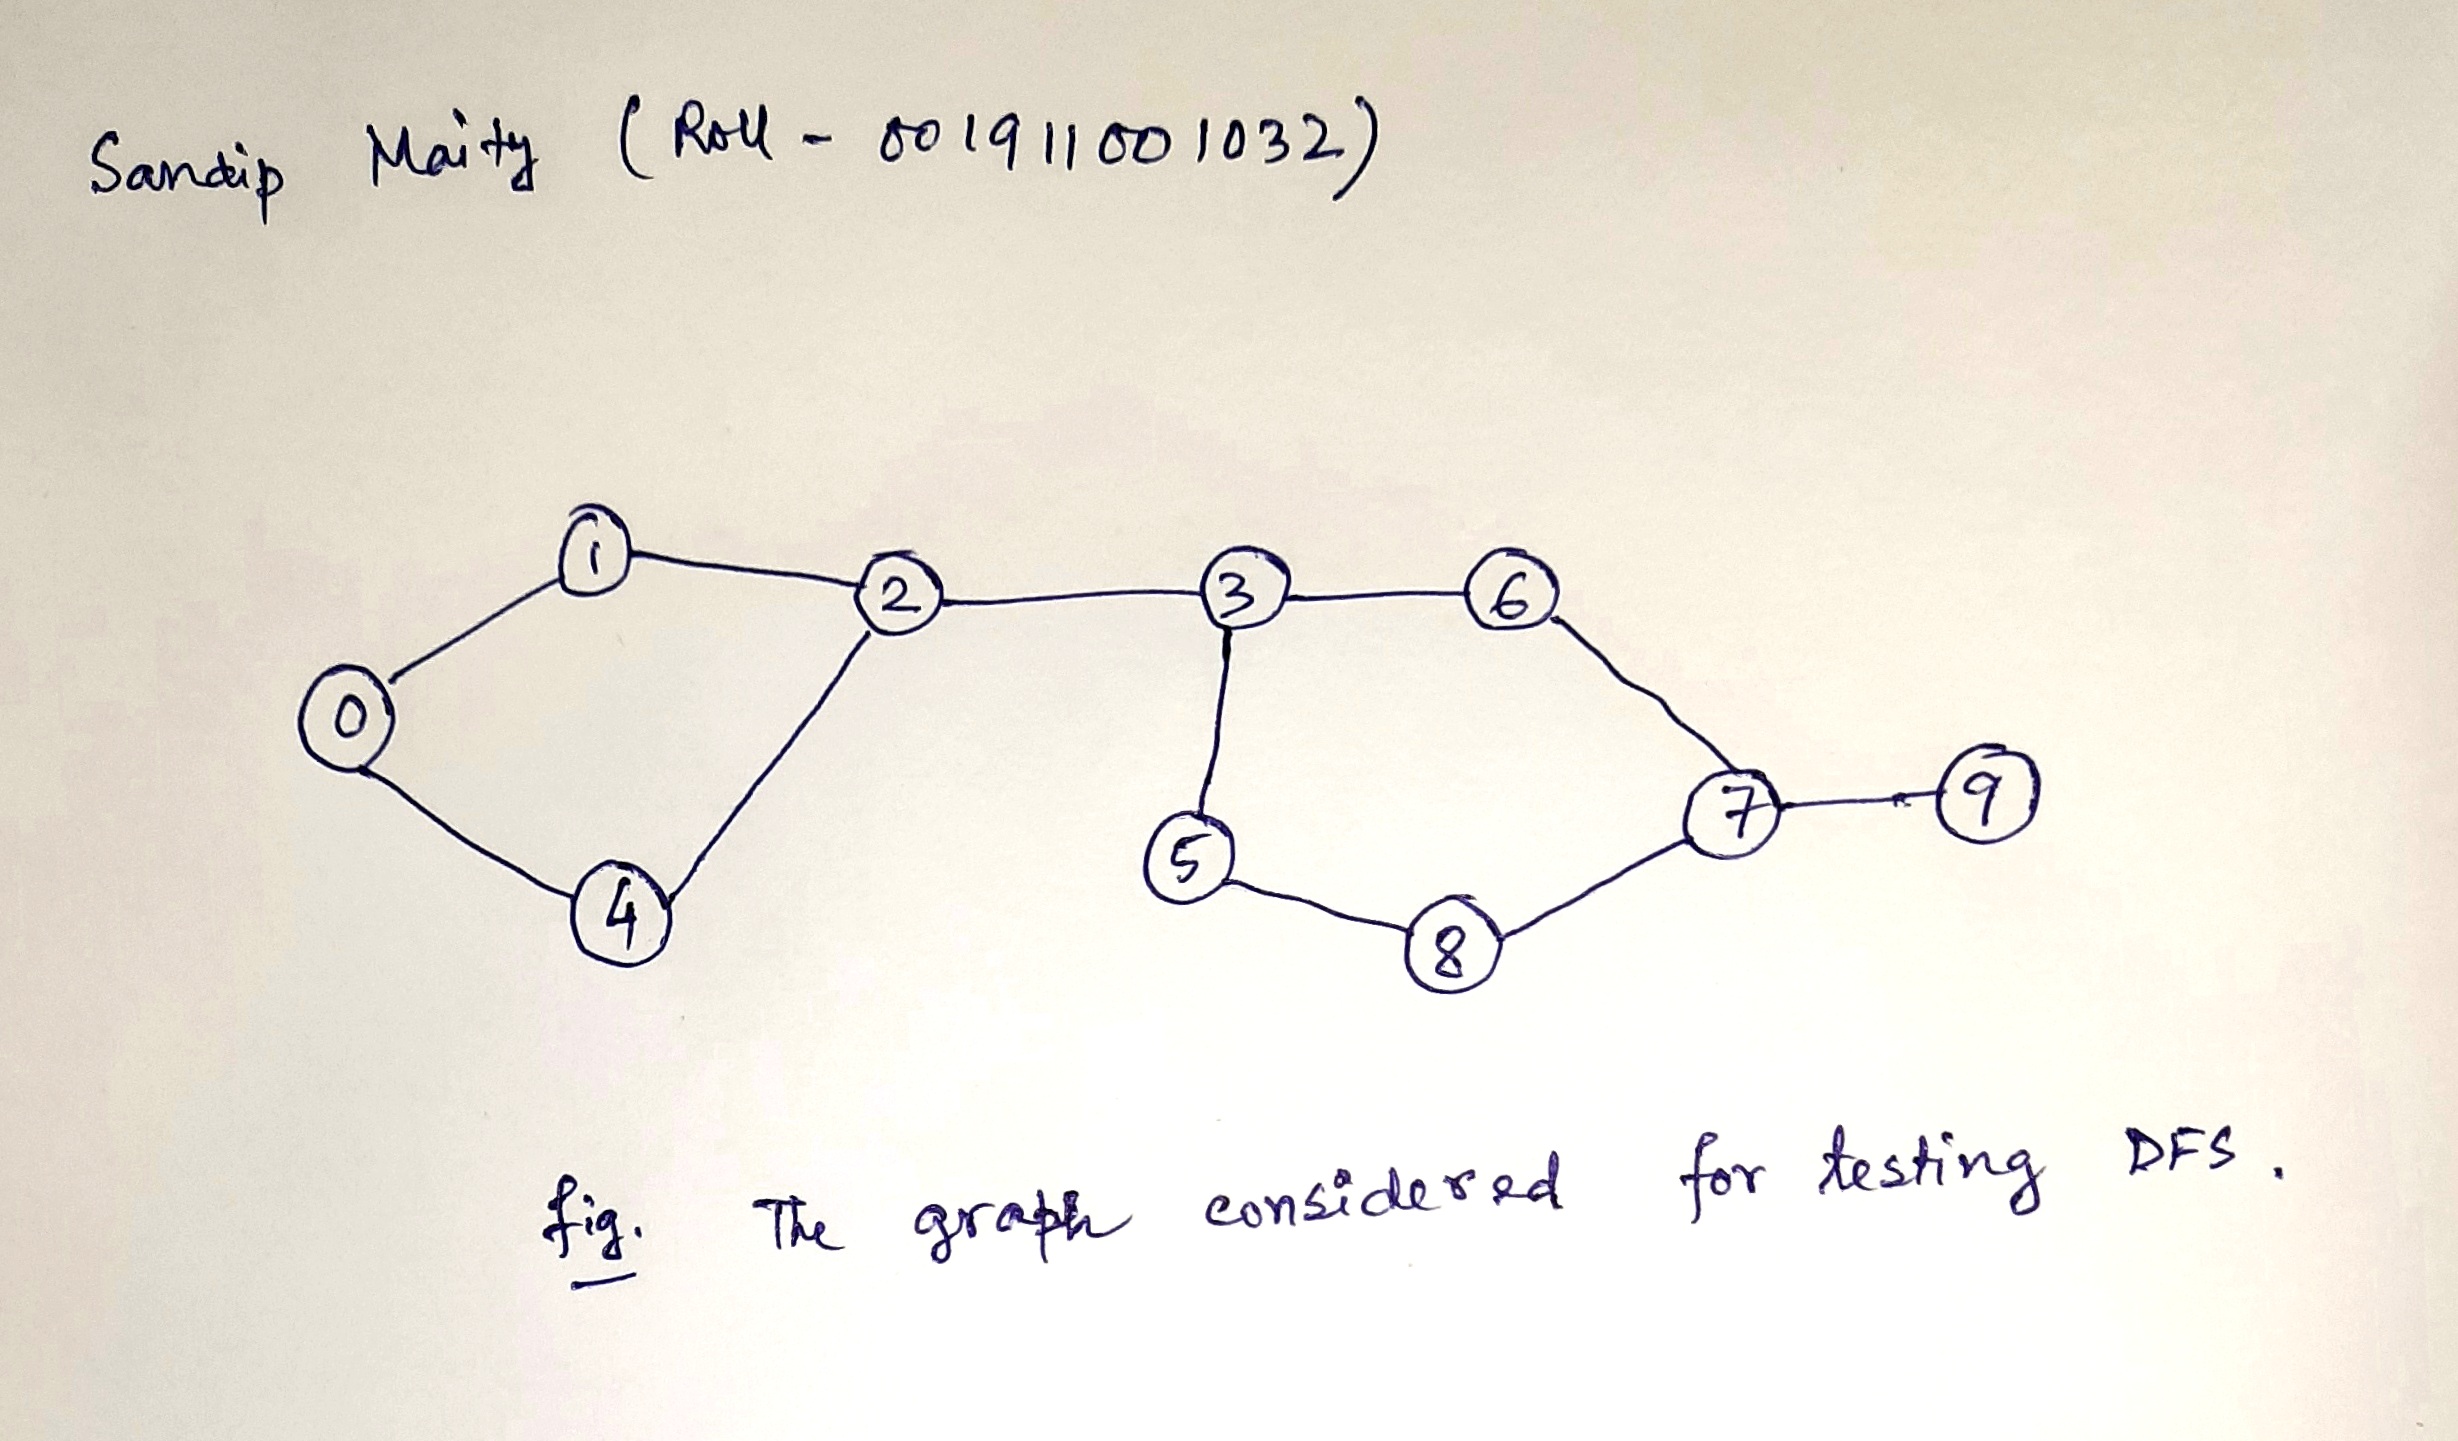 Sandip Maity (Roll - 001911001032)
1
2
3
6
0
7
9
5
4
8
fig. The graph considered for testing DFS.